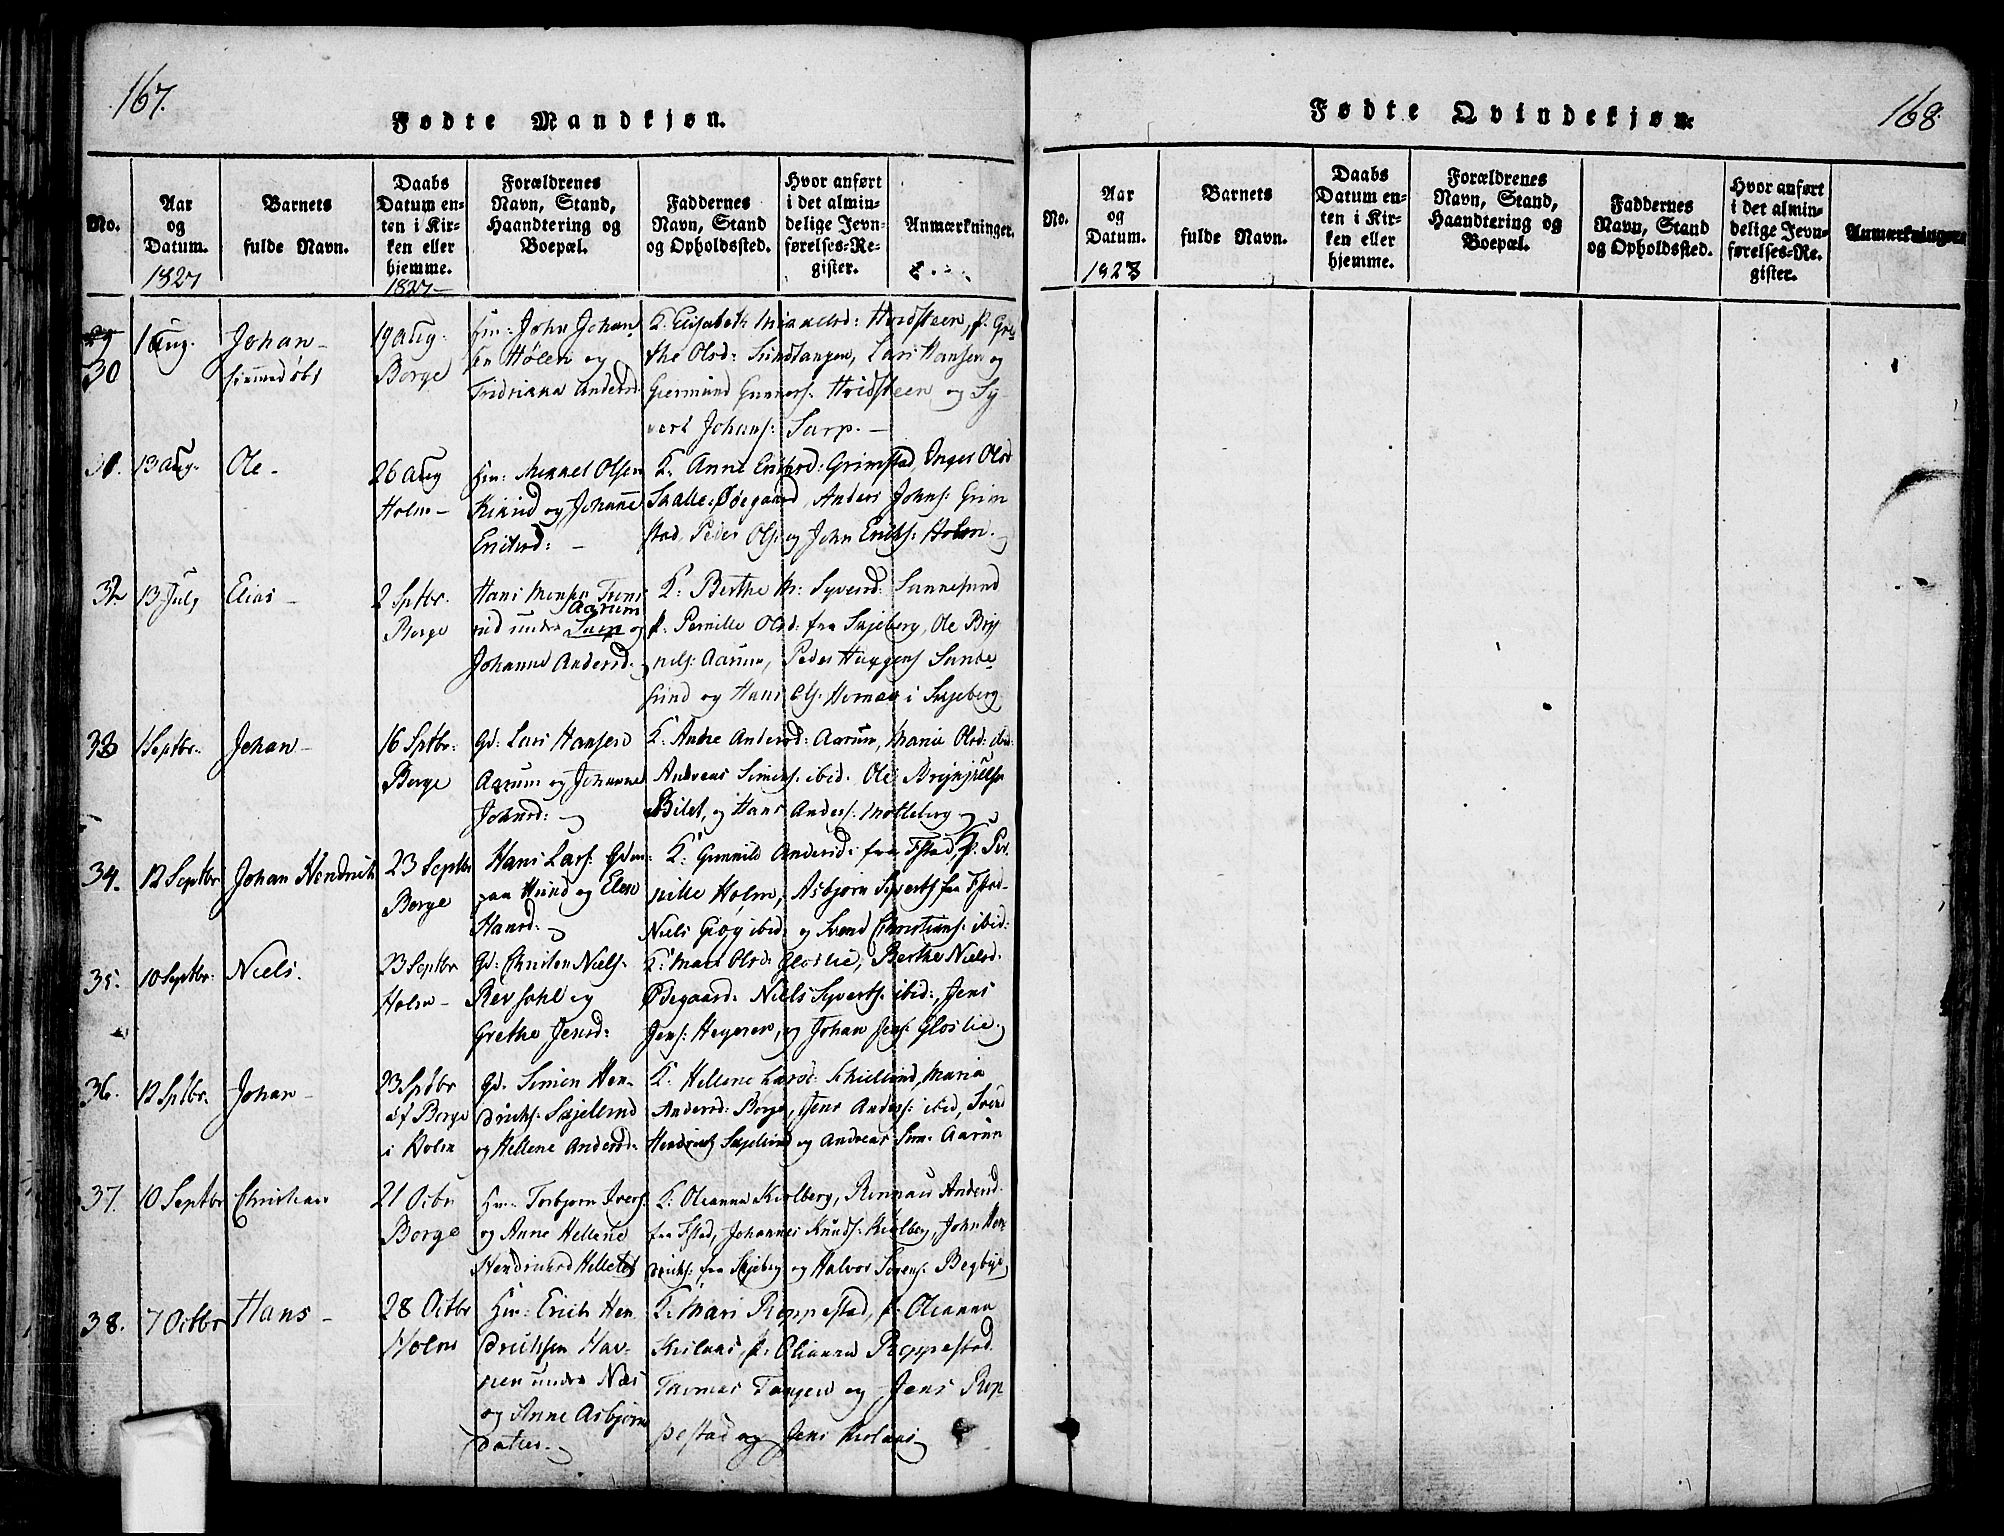 167.
Fødte Mandkjøn.
No.
Aar
og
Datum.
1827
Barnets
fulde Navn.
Daabs
Datum en-
ten i Kir-
ken eller
hjemme.
1827-
Forældrenes
Navn, Stand,
Haandtering og
Boepæl.
Faddernes
Navn, Stand
og Opholdssted.
Hvor anført
i det almin-
delige Jevn-
førelses-Re-
gister.
Anmærkninger.
30
1 Aug.
Johan-
hiemedøbt
19 Aug.
Borge
Hm: John Johan
sen Hølen og
Fridrikka Andersd.
F: Elisabeth Hvidsteen, p. Gre
the Olsd: Sundtangen, Lars Hansen og
Giermund Gunners: Hvidsteen og Sy-
vert Johans: Sarp.-
31.
13 Aug.
Ole-
26 Aug
Holm-
Hm: Mikkel Olsen
og Johanne
Ericksd: -
F: Anne Ericksd: Grimstad, Inger Olsd
Øegaard, Anders Johns: Grim
stad, Peder Ols: og John Ericks: Holm.
32
13 July
Elias-
2 Sptbr.
Borge
Hans
under Aarum og
Johanne Andersd.
F: Berthe M: Syversd: Sannesund
p. Pernille Olsd: fra Skjeberg, Ole Bry
niels: Aarum, Peder Sanne
sund og Hans Ols: Hornæs i Skjeberg
33
1 Septbr.
Johan-
16 Sptbr:
Borge
Gd: Lars Hansen
Aarum og Johanne
Johnsd: -
F: Andre Andersd: Aarum, Maria Olsd: ibid:
Andreas Simens: ibid: Ole Brynjulfs
Bilet, og Hans Anders: Molleberg
34.
12 Septbr
Johan Hendrich
23 Septbr
Borge
Hans Lars: Gdm:
paa Hund og Elen
Hansd: -
F: Gunnild Andersd: fra Fstad, p. Per-
nille Holm, Asbjørn Syverts fra Fstad-
Niels ibid: og Svend Christians: ibid:
35.
10 Septbr:
Niels.
23 Septbr
Holm-
Gd: Christen Niels:
Revhohl og
Grethe Jensd:
F: Mari Olsd: Gloslie, Berthe Nielsd.
Ødegaard: Niels Syverts: ibid:, Jens
Jens: Hegeren, og Johan Jens: Gloslie.
36.
12 Sptbr.
Johan-
23 Sptbr
af Borge
i Holm
Gd. Simen Hen-
drichs: Skjelund
og Hellene Andersd:
F: Hellene Larsd: Schielund, Maria
Andersd: Borge, Jens Anders: ibid, Svend
Hendrichs Skjelund og Andreas Sim: Aarum
37.
10 Septbr
Christian
21 Octbr
Borge
Hm: Torbjørn Ivers:
og Anne Hellene
Hendricksd Helletet
F: Oleanna Kiolberg, Rønnau Andersd.
fra Fstad, Johannes Knuds: Kiolberg, John Hen
drichs: fra Skjeberg og Halvor Sørens: Begbye,
38.
7 Octbr
Hans-
28 Octbr
Holm
Hm: Erich Hen
drichsen Hav-
nen under Næs
og Anne Asbjørns
datter.-
F: Mari Roppestad, p. Oleanna
p. Oleanna Roppestad.
Tangen og Jens Rop
pestad og Jens
168.
Fødte Qvindekjøn.
No.
Aar
og
Datum.
1828
Barnets
fulde Navn.
Daabs
Datum en-
ten i Kir-
ken eller
hjemme.
Forældrenes
Navn, Stand,
Haandtering og
Boepæl.
Faddernes
Navn, Stand
og Opholdssted.
Hvor anført
i det almin-
delige Jevn-
førelses-Re-
gister.
Anmærkninger.